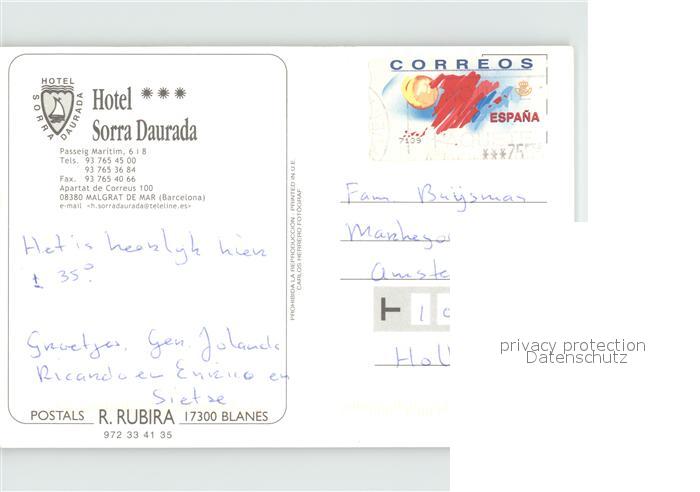 HOTEL
SORRA DAURADA
Hotel ***
Sorra Daurada
Passeig Marítim, 6 i 8
Tels. 93 765 45 00
93 765 36 84
Fax. 93 765 40 66
Apartat de Correus 100
08380 MALGRAT DE MAR (Barcelona)
e-mail <h.sorradaurada@teleline.es>
Het is heerlijk hier
± 35°.
Groetjes, Ger, Jolanda
Ricardo en Enrico en
Sietse
POSTALS R. RUBIRA 17300 BLANES
972 33 41 35
PROHIBIDA LA REPRODUCCIÓN - PRINTED IN U.E.
CARLOS HERRERO FOTÓGRAF
CORREOS
ESPAÑA
7139
***75
Fam. Buijsman
Amste
T
1
Holl
privacy protection
Datenschutz